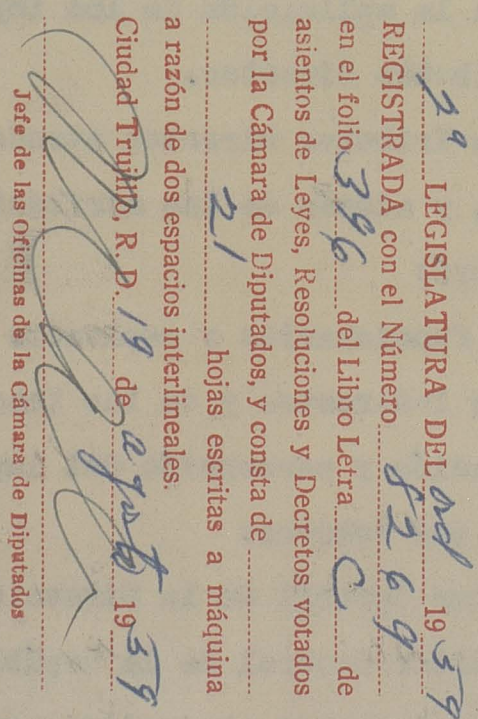 2ª LEGISLATURA DEL ord 1939
REGISTRADA con el Número 8269
en el folio 396 del Libro Letra C de
asientos de Leyes, Resoluciones y Decretos votados
por la Cámara de Diputados, y consta de
21 hojas escritas a máquina
a razón de dos espacios interlineales.
Ciudad Trujillo, R. D. 19 de agosto 1939
Jefe de las Oficinas de la Cámara de Diputados